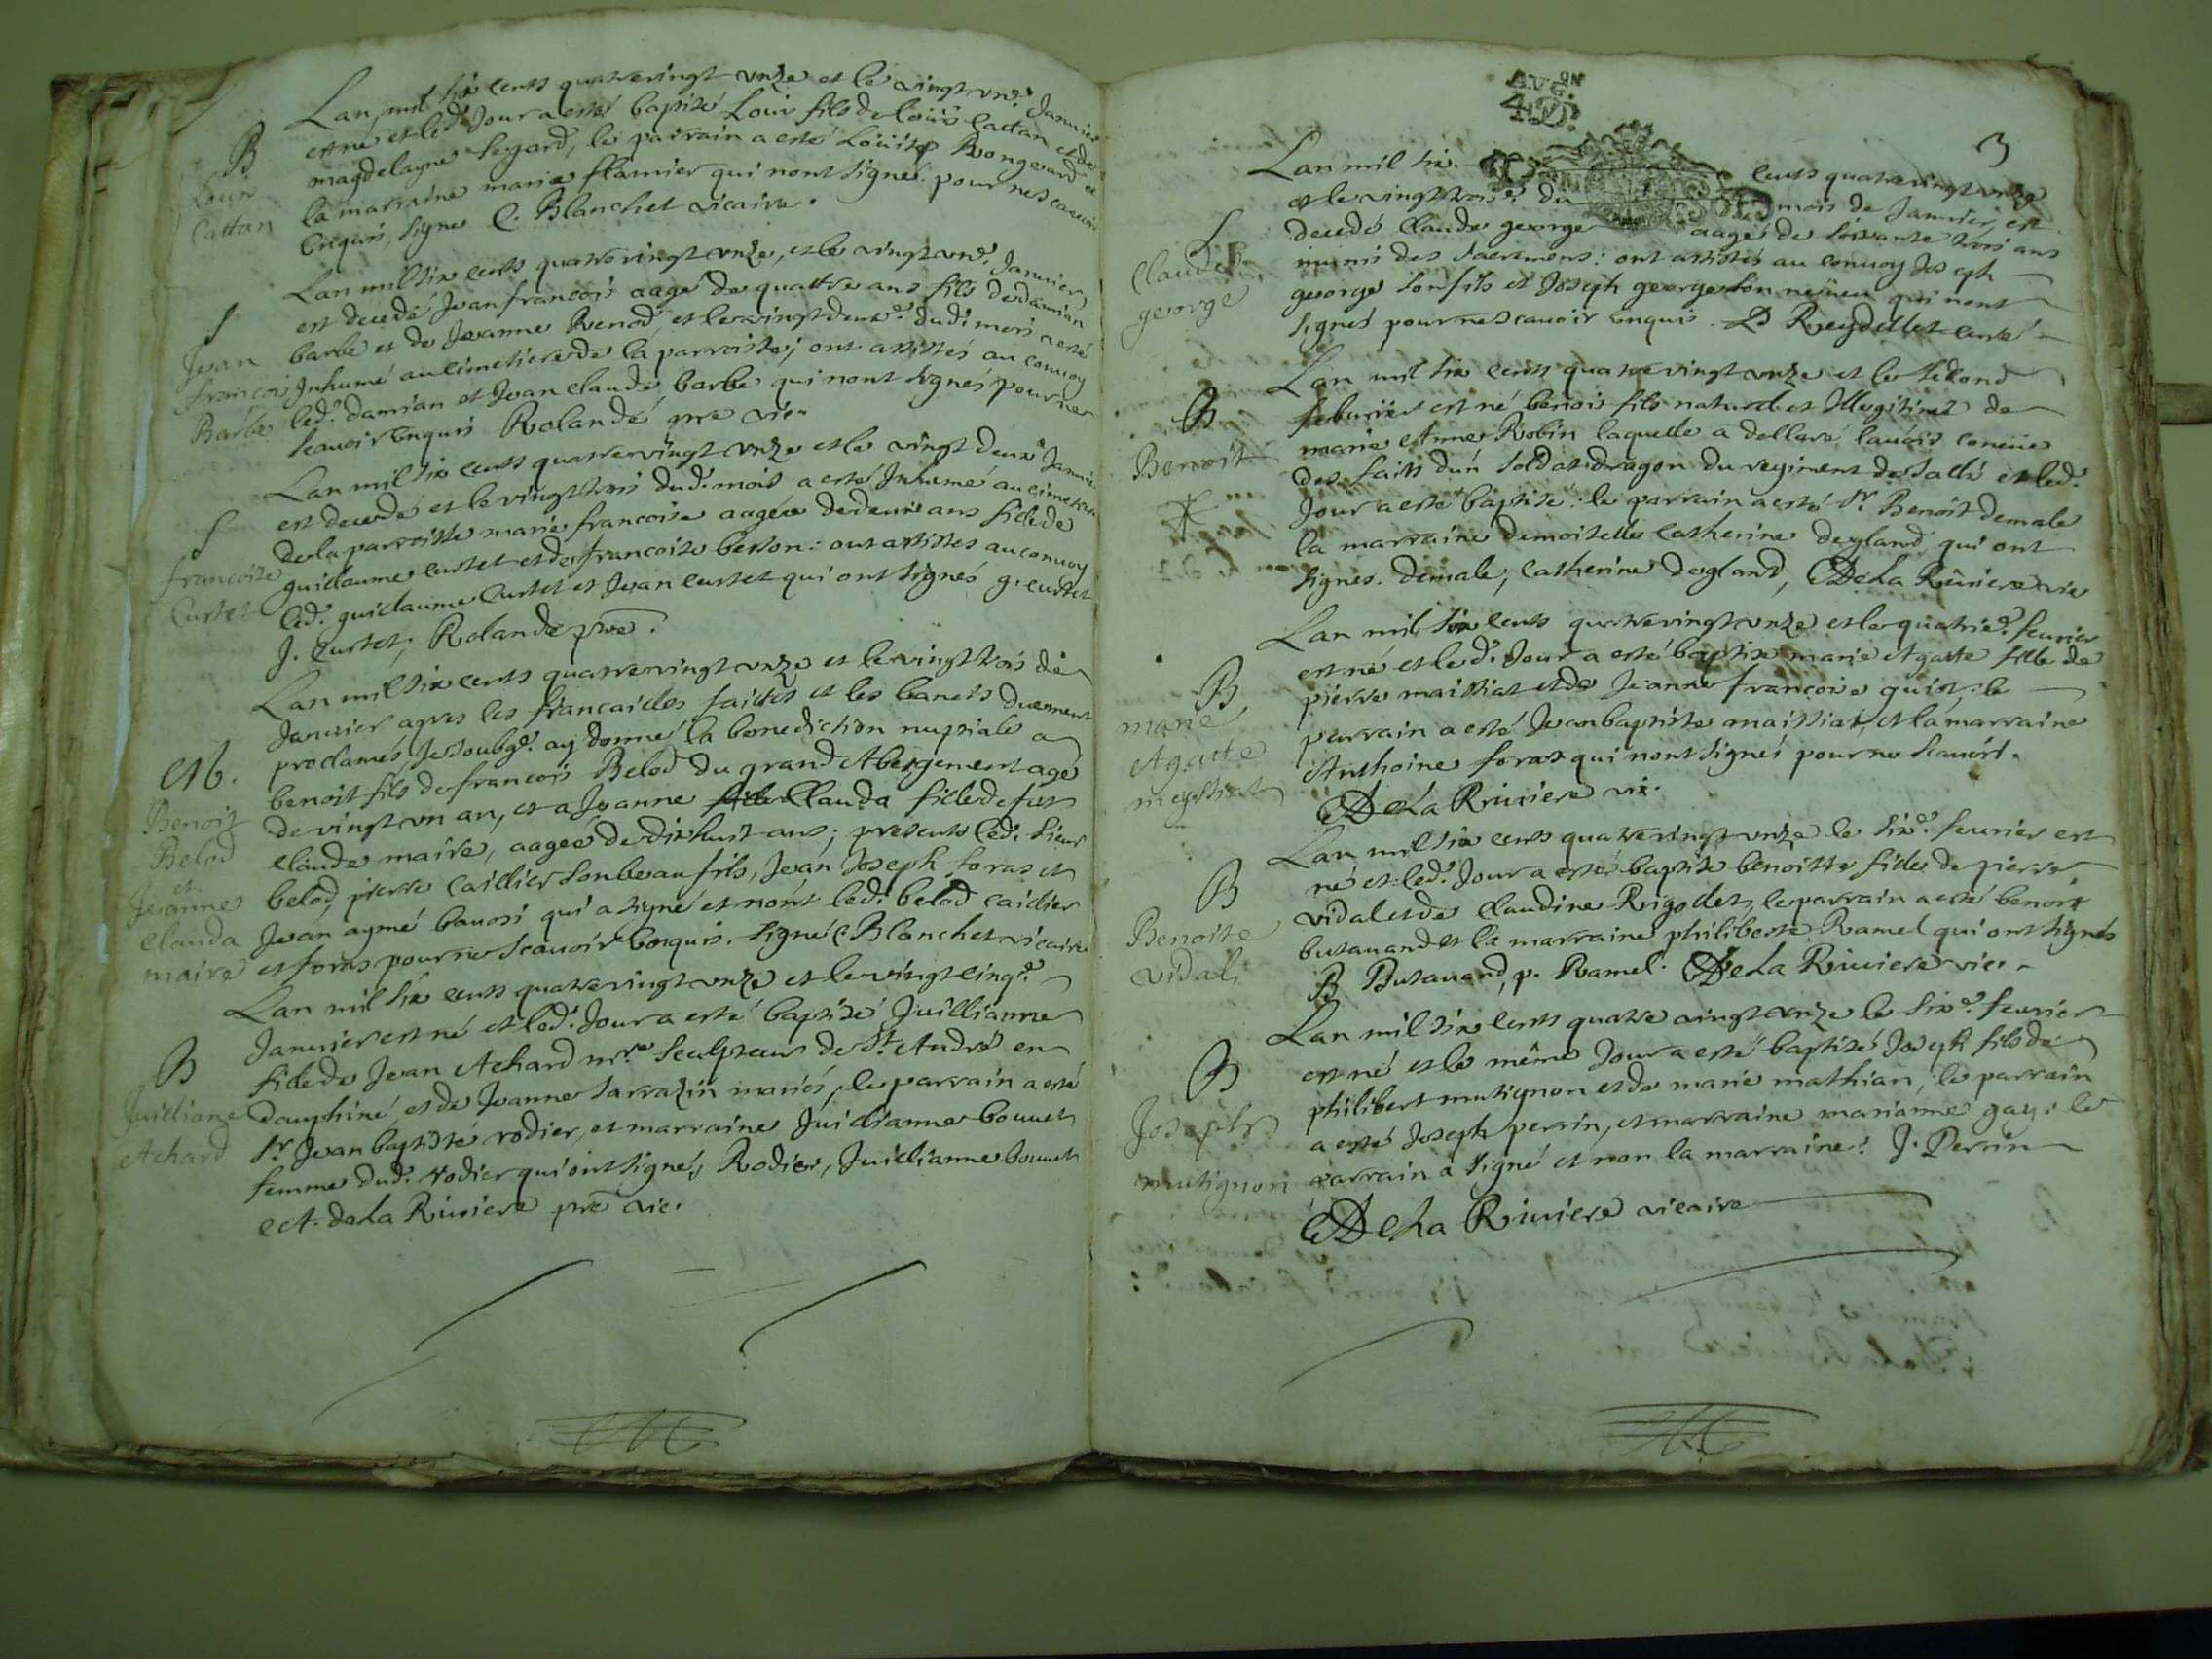 Lan mil six cents quatrevingt vnze et le vingt vn.e Januier
est né et led. Jour a esté baptisé Louis fils de loüis Cattan et de
magdelayne Seyard, le parrain a esté Loüis Rongeard et
la marraine marie flamier qui nont signés pour ne scauoir
enquis, signé C. Blanchet vicaire.
B
Louis
Cattan
Lan mil six cents quatrevingt vnze, et le vingt vn.e Januier,
est decedé Jean francois aagé de quattre ans fils de damian
barbe et de Jeanne Renod, et le vingt deux.e dud. mois a esté
Inhumé au cimetiere de la parroisse; ont assistés au conuoy
led. damian et Jean claude barbe qui nont signés pour ne
scauoir enquis Rolandé pre vic.
S
Jean
francois
Barbe
Lan mil six cents quatrevingt vnze et le vingt deux
est decedé et le vingt trois dud. mois a esté Inhumé au cimetiere
de la parroisse marie francoise aagée de deux ans fille de
guillaume curtet et de francoise berton: ont assistés au conuoy
led. guillaume Curtet et Jean curtet qui ont signés g. curtet
J. Curtet, Rolande pre.
S
francoise
Curtet
Lan mil six cents quatrevingt vnze et le vingt trois de
Januier apres les fiancailles faictes et les bancs duement
proclamés, Je soubg.é ay donné la benediction nuptiale a
benoit fils de francois Belod du grand Abergement agé
de vingt vn an, et a Jeanne Clauda fille de fut
claude maire, aagée de dixhuit ans; presents led. sieur
belod, pierre caillier son beau fils, Jean Joseph foras et
Jean aymé bauosi qui a signé et nont led. belod caillier
et foras pour ne scauoir enquis. signé C Blanchet vicaire
M.
Benoit
Belod
et
Jeanne
Clauda
maire
Lan mil six cents quatrevingt vnze et le vingt cinq.e
Januier est né et led. Jour a esté baptisé Juillianne
fille de Jean Achard m.re sculpteur de St. André en
dauphiné et de Jeanne sarrazin mariés, le parrain a esté
Sr. Jean baptiste rodier, et marraine Juillianne bouuet
femme dud. rodier qui ont signé, Rodier, Juillianne bouuet
A. de La Riuiere pre vic.
B
Juilliane
Achard
AVG.ON
4.D.
3
Lan mil six cents quatrevingt vnze
et le vingt trois.e du dud mois de Januier, est
decedé claude george aagé de soixante trois ans
munis des sacremens: ont assistés au conuoy Joseph
george son fils et Joseph george son neueu qui nont
signés pour ne scauoir enquis. D Reydellet curé
S
Claude
george
Lan mil six cents quatrevingt vnze et le second
feburier est né benois fils naturel et Illegitime de
marie Anne Robin laquelle a dellaré lauoir conceüe
des faits dún soldat dragon du regiment de sallé et led.
Jour a esté baptisé: le parrain a esté Sr. Benoit demale
la marraine demoiselle Catherine degland qui ont
signés. demale, Catherine degland, A De La Riuiere vic
B
Benoit
Lan mil six cents quatrevingt vnze et le quatrie.e feurier
est né et led. Jour a esté baptisé marie Agatte fille de
pierre maissiat et de Jeanne francoise guiot: le
parrain a esté Jean baptiste maissiat, et la marraine
Anthoine foras qui nont signés pour ne scauoir.
A De La Riuiere vic.
B
marie
Agatte
meyssiat
Lan mil six cents quatrevingt vnze le six.e feurier est
né et led. Jour a esté baptisé benoitte fille de pierre
vidal et de Claudine Rigodet, le parrain a esté benoit
butauand et la marraine philiberte Ramel qui ont signés
B Butauand, p. Ramel. A De La Riuiere vic.
B
Benoite
vidal
Lan mil six cents quatre vingt vnze le six.e feurier
est né et le même Jour a esté baptisé Joseph fils de
philibert mutignon et de marie mathian, le parrain
a esté Joseph perrin, et marraine marianne gay: le
parrain à signé et non la marraine. J. Perrin
A De La Riuiere vicaire
B
Joseph
mutignon